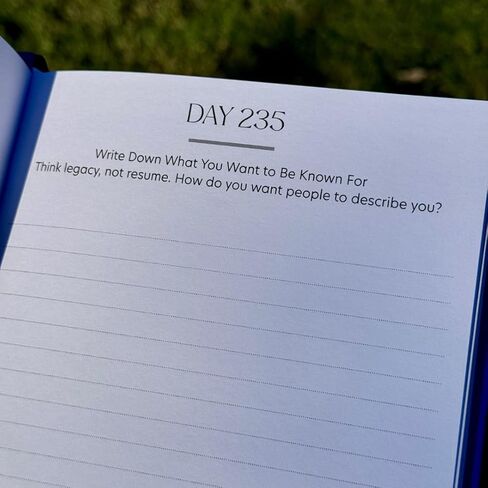 DAY 235
Write Down What You Want to Be Known For
Think legacy, not resume. How do you want people to describe you?